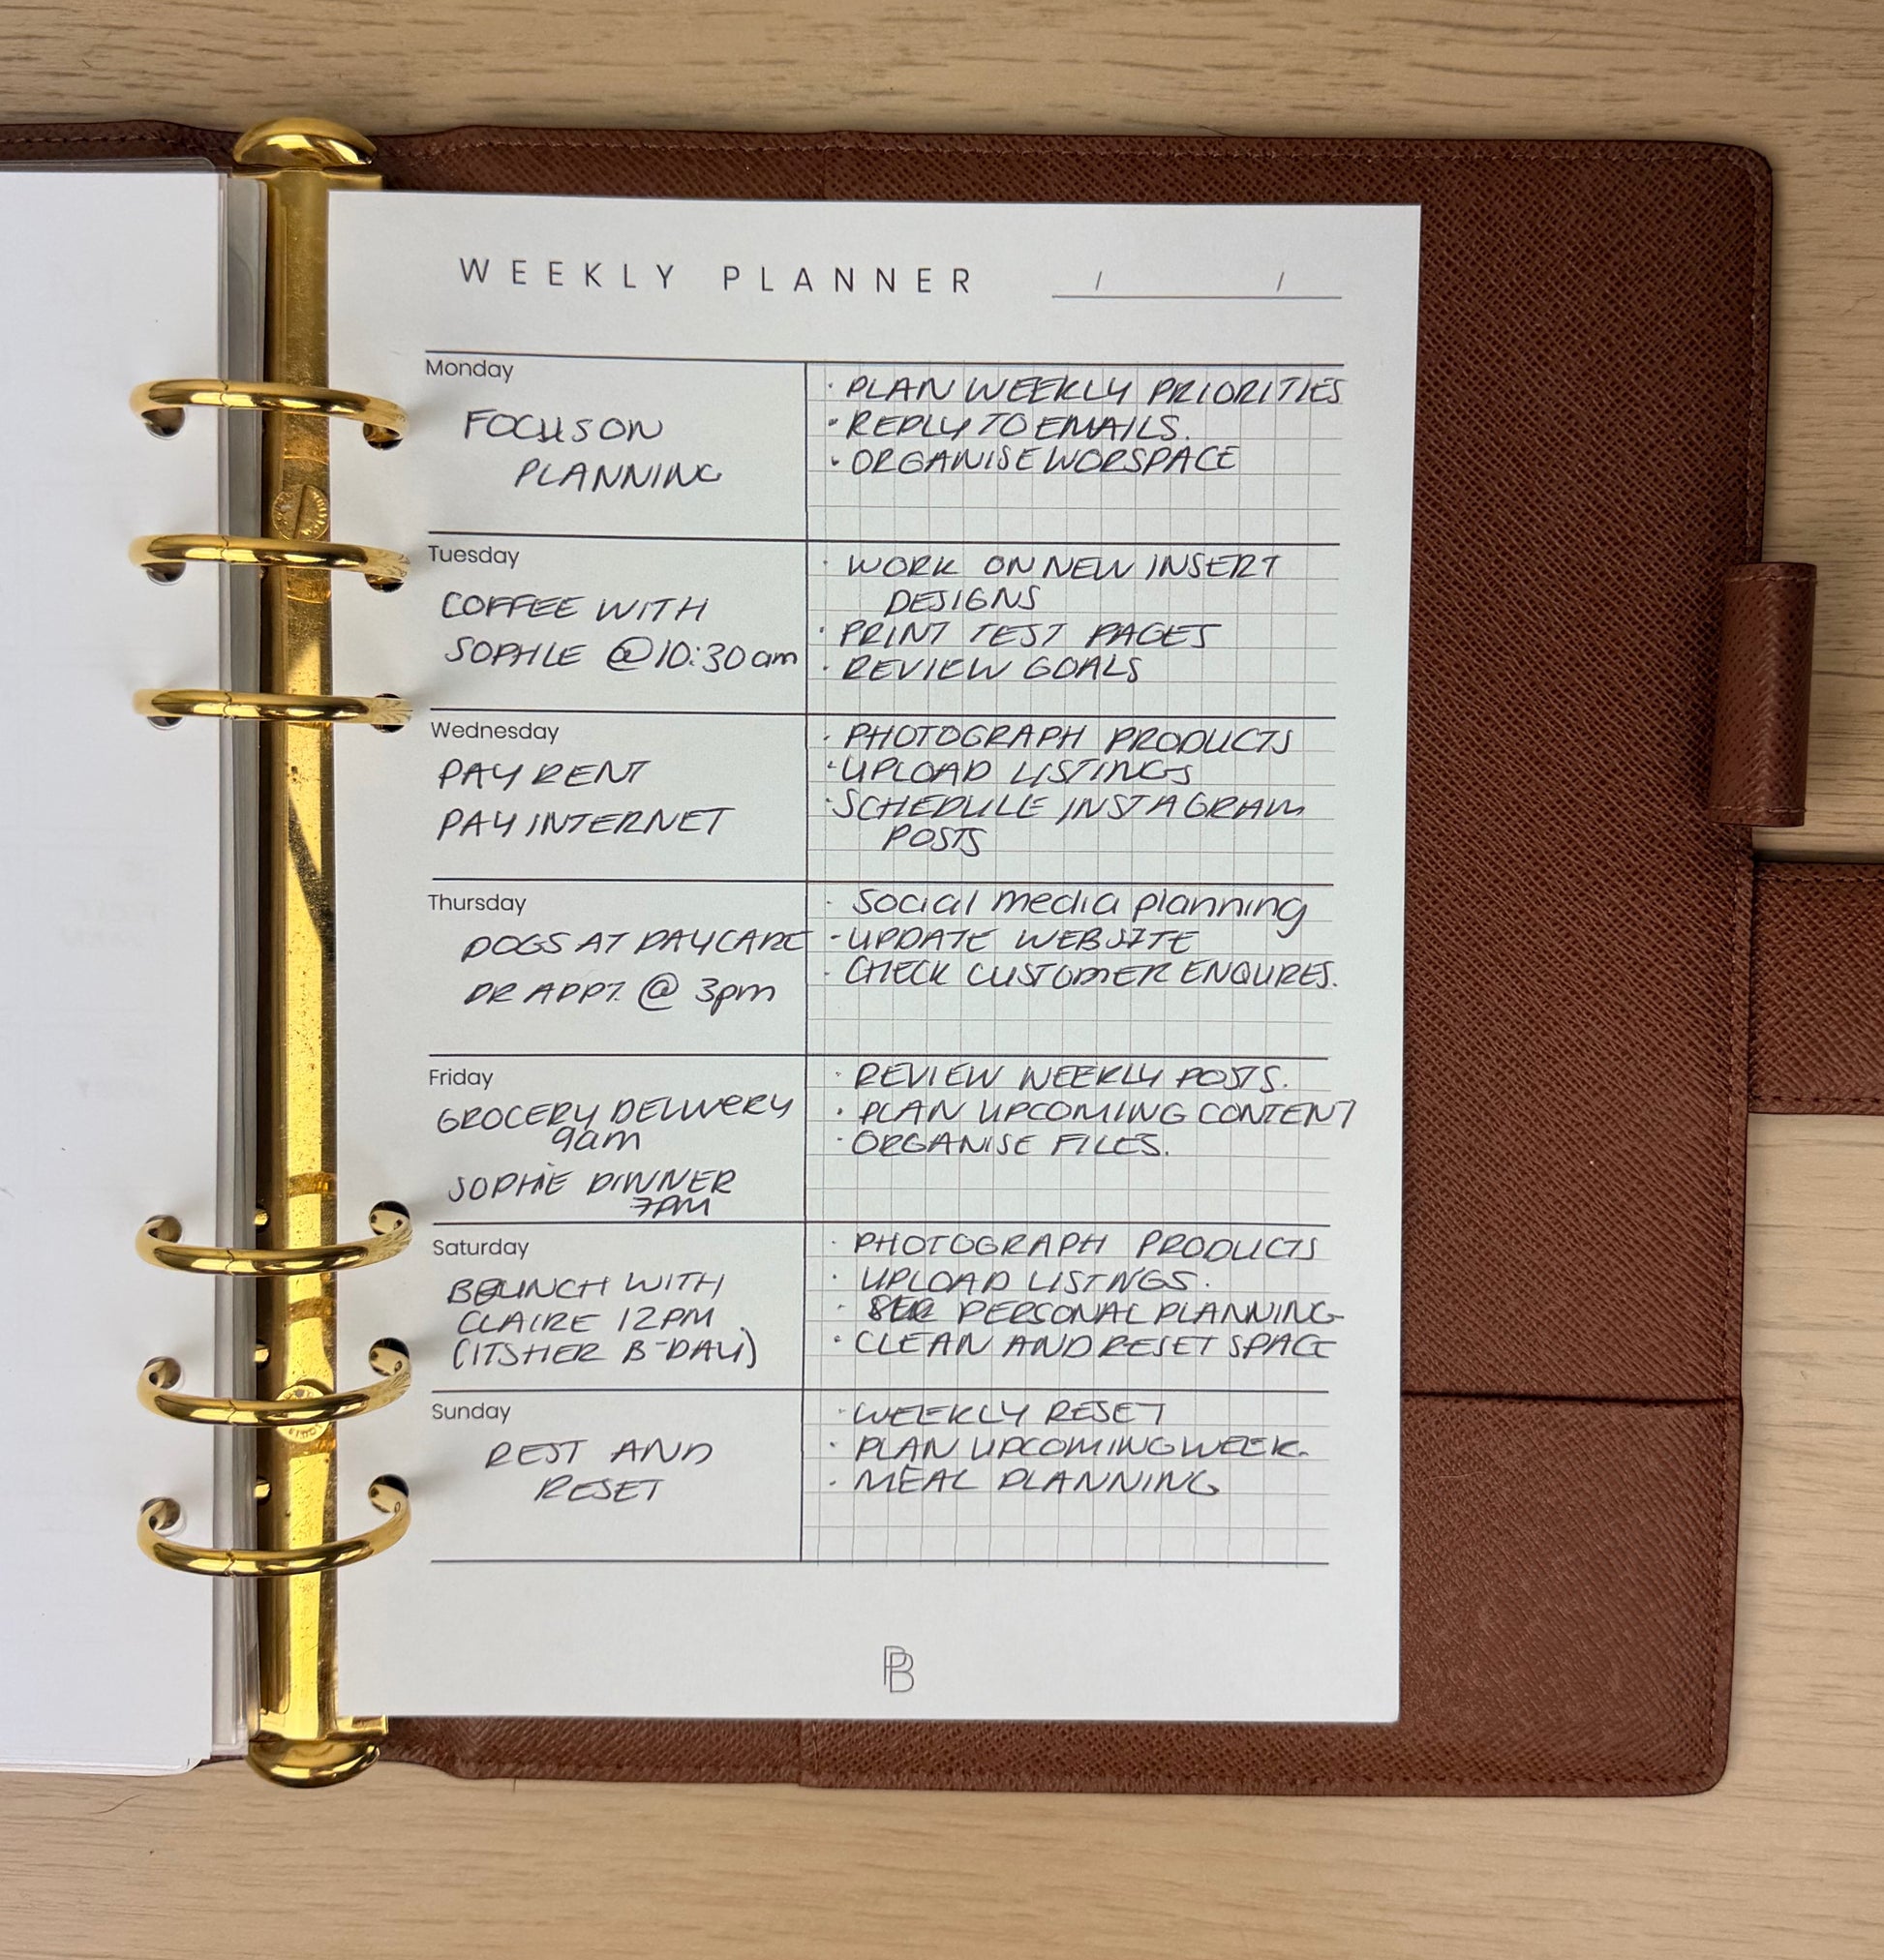 WEEKLY PLANNER / /
Monday
FOCUS ON
PLANNING
· PLAN WEEKLY PRIORITIES
· REPLY TO EMAILS.
· ORGANISE WORSPACE
Tuesday
COFFEE WITH
SOPHIE @ 10:30am
· WORK ON NEW INSERT
DESIGNS
· PRINT TEST PAGES
· REVIEW GOALS
Wednesday
PAY RENT
PAY INTERNET
· PHOTOGRAPH PRODUCTS
· UPLOAD LISTINGS
· SCHEDULE INSTAGRAM
POSTS
Thursday
DOGS AT DAYCARE
DR APPT. @ 3pm
· Social media planning
- UPDATE WEBSITE
· CHECK CUSTOMER ENQURES.
Friday
GROCERY DELIVERY
9am
SOPHIE DINNER
7PM
· REVIEW WEEKLY POSTS.
· PLAN UPCOMING CONTENT
· ORGANISE FILES.
Saturday
BRUNCH WITH
CLAIRE 12PM
(ITS HER B-DAY)
· PHOTOGRAPH PRODUCTS
· UPLOAD LISTNGS.
· PERSONAL PLANNING
· CLEAN AND RESET SPACE
Sunday
REST AND
RESET
· WEEKLY RESET
· PLAN UPCOMING WEEK.
· MEAL PLANNING
PB